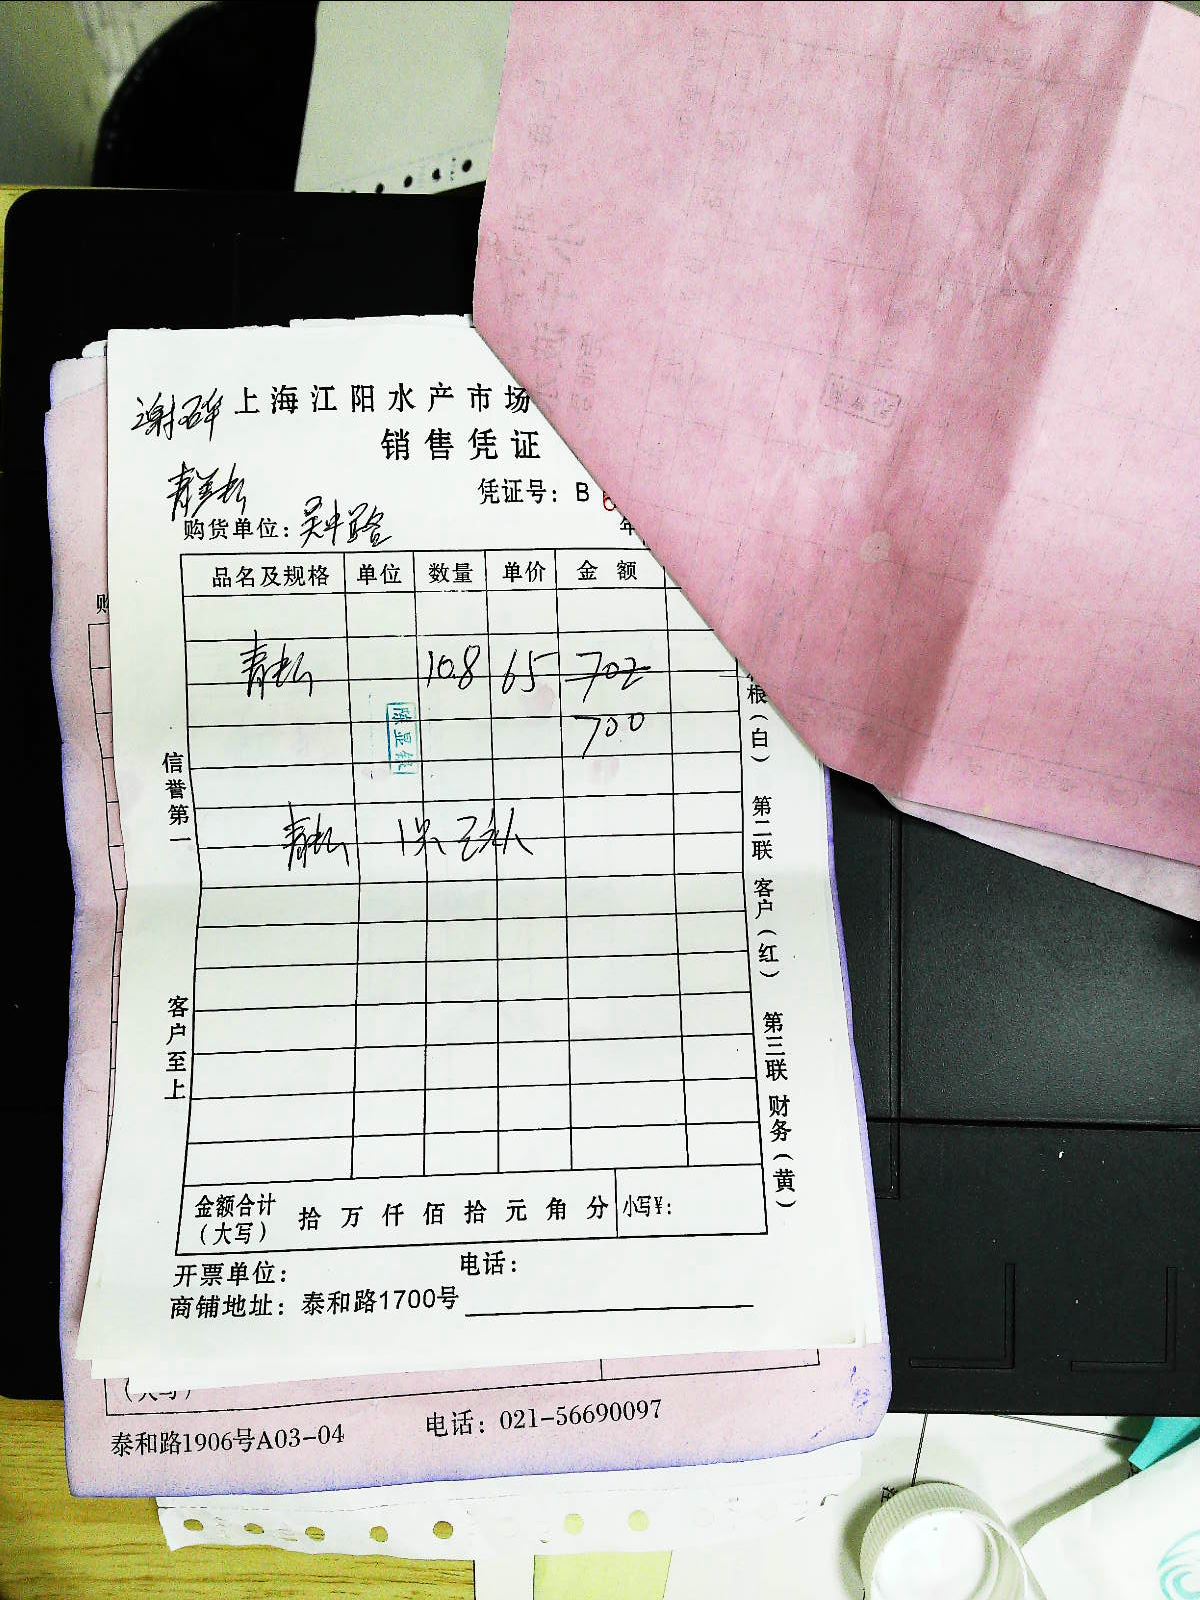 上海江阳水产市场
销售凭证
凭证号：B 6
购货单位：吴中路
年
品名及规格 单位 数量 单价 金 额
10.8 65 702
700
信誉第一
客户至上
根（白） 第二联 客户（红） 第三联 财务（黄）
金额合计（大写） 拾 万 仟 佰 拾 元 角 分 小写¥：
开票单位： 电话：
商铺地址：泰和路1700号
购
（大写）
泰和路1906号A03-04 电话：021-56690097